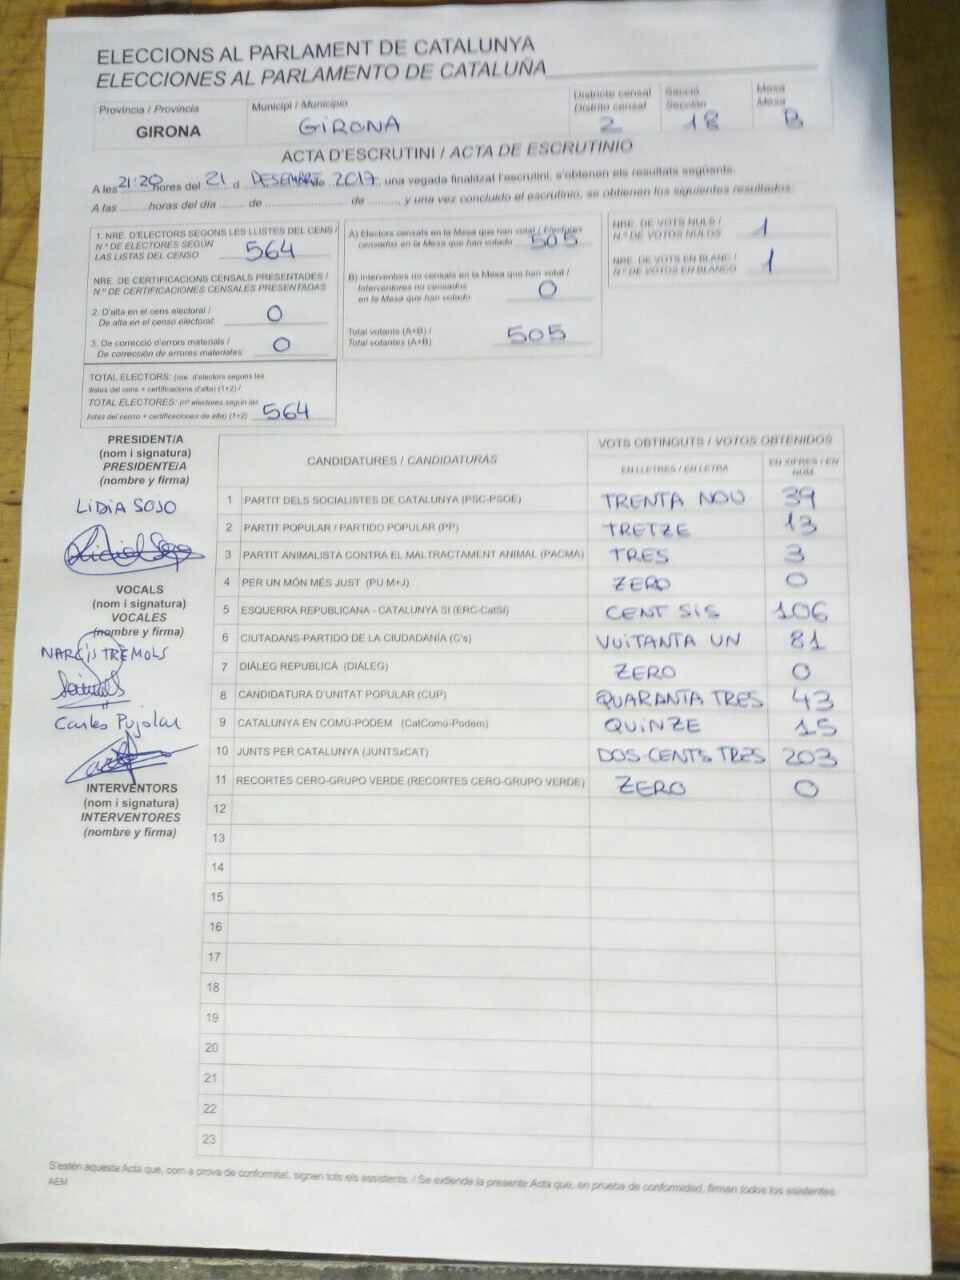 ELECCIONS AL PARLAMENT DE CATALUNYA
ELECCIONES AL PARLAMENTO DE CATALUÑA
Província / Provincia
GIRONA
Municipi / Municipio
GIRONA
Districte censal
Distrito censal
2
Secció
Sección
18
Mesa
Mesa
B
ACTA D'ESCRUTINI / ACTA DE ESCRUTINIO
A les 21:20 hores del 21 d DESEMBRE de 2017, una vegada finalitzat l'escrutini, s'obtenen els resultats següents
A las ......... horas del día ........ de ........................ de ......... y una vez concluido el escrutinio, se obtienen los siguientes resultados:
1. NRE. D'ELECTORS SEGONS LES LLISTES DEL CENS /
N.º DE ELECTORES SEGÚN
LAS LISTAS DEL CENSO
564
NRE. DE CERTIFICACIONS CENSALS PRESENTADES /
N.º DE CERTIFICACIONES CENSALES PRESENTADAS
2. D'alta en el cens electoral /
De alta en el censo electoral:
0
3. De correcció d'errors materials /
De corrección de errores materiales:
0
TOTAL ELECTORS: (nre. d'electors segons les
llistes del cens + certificacions d'alta) (1+2) /
TOTAL ELECTORES: (nº electores según las
listas del censo + certificaciones de alta) (1+2)
564
A) Electors censats en la Mesa que han votat / Electores
censados en la Mesa que han votado
505
B) Interventors no censats en la Mesa que han votat /
Interventores no censados
en la Mesa que han votado
0
Total votants (A+B) /
Total votantes (A+B)
505
NRE. DE VOTS NULS /
N.º DE VOTOS NULOS
1
NRE. DE VOTS EN BLANC /
N.º DE VOTOS EN BLANCO
1
PRESIDENT/A
(nom i signatura)
PRESIDENTE/A
(nombre y firma)
LIDIA SOJO
VOCALS
(nom i signatura)
VOCALES
(nombre y firma)
NARCÍS TREMOLS
Carles Pujolar
INTERVENTORS
(nom i signatura)
INTERVENTORES
(nombre y firma)
CANDIDATURES / CANDIDATURAS
VOTS OBTINGUTS / VOTOS OBTENIDOS
EN LLETRES / EN LETRA
EN XIFRES / EN NÚM
1 PARTIT DELS SOCIALISTES DE CATALUNYA (PSC-PSOE) TRENTA NOU 39
2 PARTIT POPULAR / PARTIDO POPULAR (PP) TRETZE 13
3 PARTIT ANIMALISTA CONTRA EL MALTRACTAMENT ANIMAL (PACMA) TRES 3
4 PER UN MÓN MÉS JUST (PU M+J) ZERO 0
5 ESQUERRA REPUBLICANA - CATALUNYA SI (ERC-CatSí) CENT SIS 106
6 CIUTADANS-PARTIDO DE LA CIUDADANÍA (C's) VUITANTA UN 81
7 DIÀLEG REPUBLICÀ (DIÀLEG) ZERO 0
8 CANDIDATURA D'UNITAT POPULAR (CUP) QUARANTA TRES 43
9 CATALUNYA EN COMÚ-PODEM (CatComú-Podem) QUINZE 15
10 JUNTS PER CATALUNYA (JUNTSxCAT) DOS-CENTS TRES 203
11 RECORTES CERO-GRUPO VERDE (RECORTES CERO-GRUPO VERDE) ZERO 0
12
13
14
15
16
17
18
19
20
21
22
23
S'estén aquesta Acta que, com a prova de conformitat, signen tots els assistents. / Se extiende la presente Acta que, en prueba de conformidad, firman todos los asistentes.
AEM